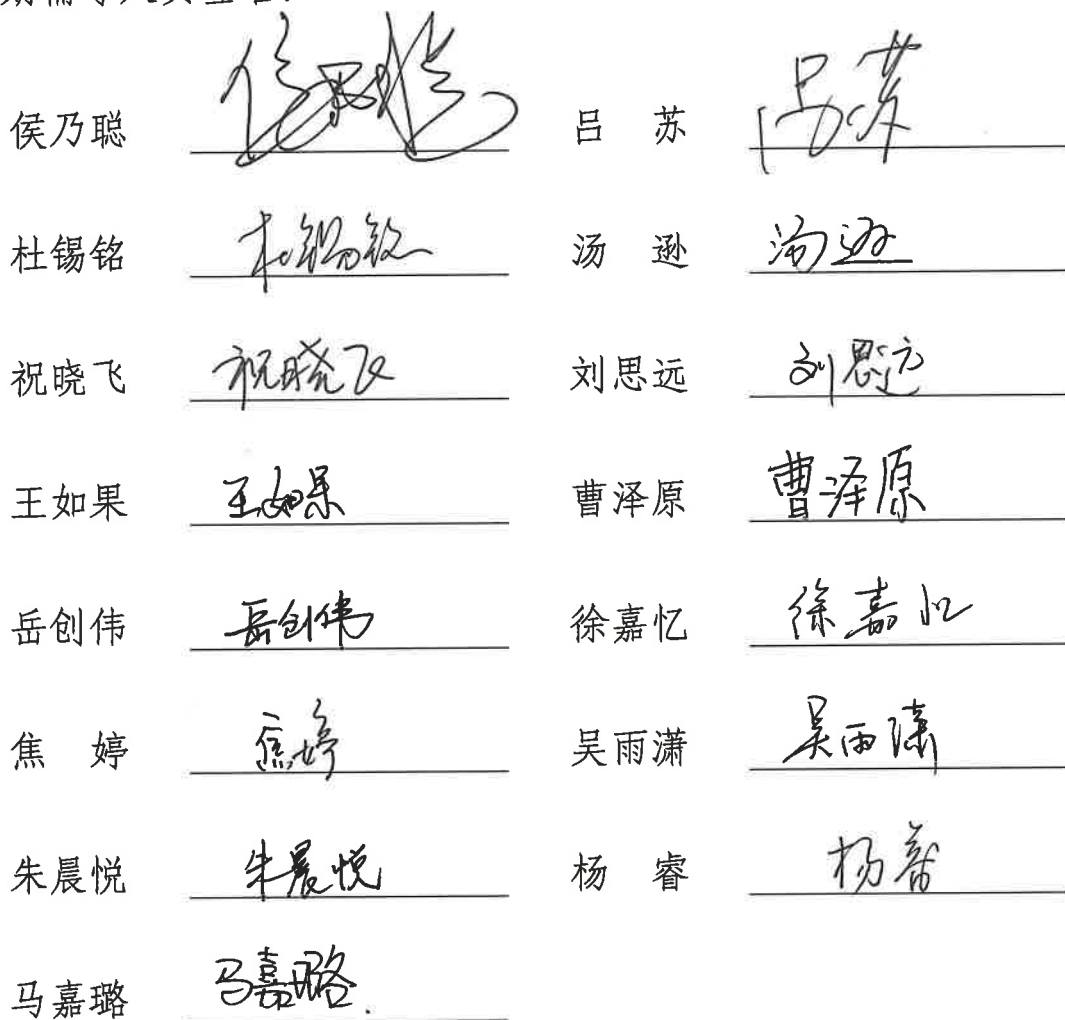 辅导人员签名：
侯乃聪 侯乃聪 吕 苏 吕苏
杜锡铭 杜锡铭 汤 逊 汤逊
祝晓飞 祝晓飞 刘思远 刘思远
王如果 王如果 曹泽原 曹泽原
岳创伟 岳创伟 徐嘉忆 徐嘉忆
焦 婷 焦婷 吴雨潇 吴雨潇
朱晨悦 朱晨悦 杨 睿 杨睿
马嘉璐 马嘉璐